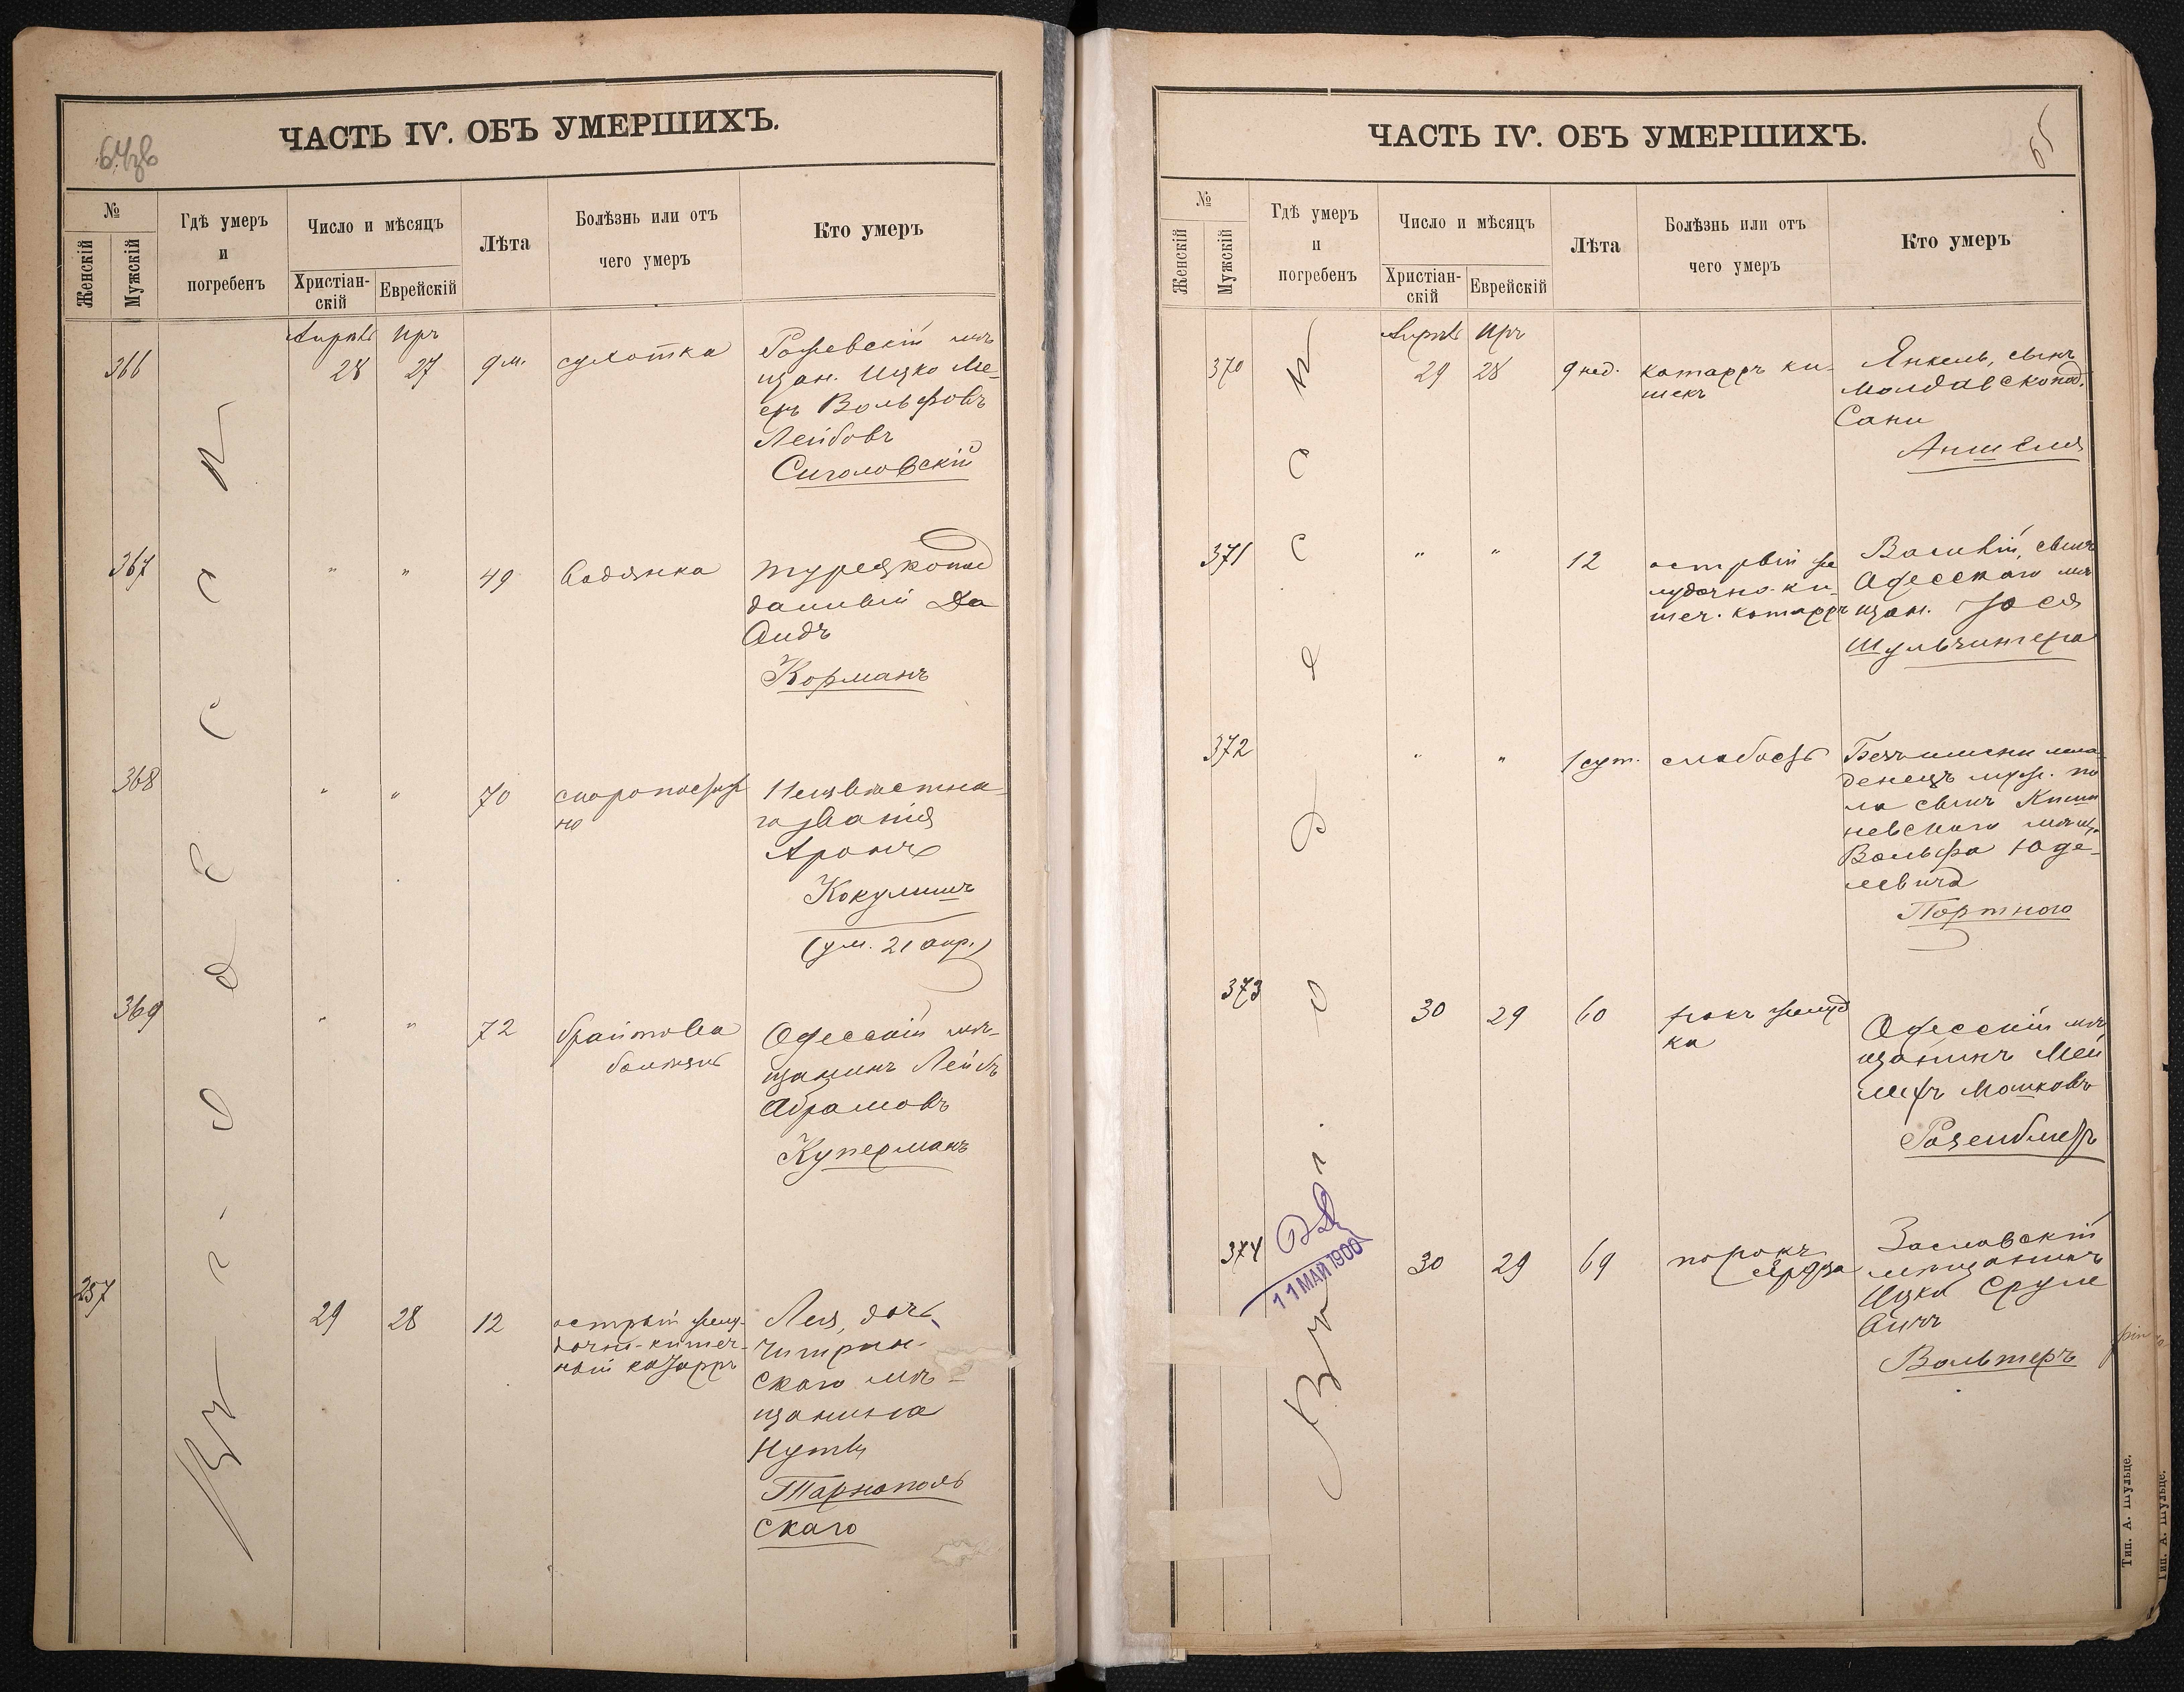 64зв
ЧАСТЬ IV. ОБЪ УМЕРШИХЪ.
№
Женскій
Мужскій
Гдѣ умеръ
и
погребенъ
Число и мѣсяцъ
Христіан-
скій
Еврейскій
Лѣта
Болѣзнь или отъ
чего умеръ
Кто умеръ
Въ г. Одессѣ
366
Апрѣль Иръ
28 27
9 м.
сухотка
мѣ
щан. Ицко Ме-
еръ Вольфовъ
Лейбовъ
Сиголовскій
367
" "
49
Водянка
турецкопод
данный Да
видъ
Корманъ
368
" "
70
скоропостиж
но
Неизвѣстна-
го званія
Аронъ
(ум. 21 апр.)
369
" "
72
брайтова
болѣзнь
Одесскій мѣ-
щанинъ Лейбъ
Абрамовъ
Куперманъ
257
29 28
12
острый желу-
дочно-кишеч-
ный катарръ
Лея, дочь
скаго мѣ-
щанина
Нуты
Тарнополь
скаго
ЧАСТЬ IV. ОБЪ УМЕРШИХЪ.
65
№
Женскій
Мужскій
Гдѣ умеръ
и
погребенъ
Число и мѣсяцъ
Христіан-
скій
Еврейскій
Лѣта
Болѣзнь или отъ
чего умеръ
Кто умеръ
Въ г. Одессѣ
370
Апрѣль Иръ
29 28
9 нед.
катарръ ки-
шекъ
Янкель, сынъ
молдавскопод.
Сани
Аншеля
371
" "
12
острый же
лудочно-ки-
шеч. катарръ
Василій, сынъ
Одесскаго мѣ
щан. Іося
372
" "
1 сут.
слабость
Безъ имени мла
денецъ муж. по
ла сынъ Киши
невскаго мѣщ.
Вольфа Юде-
левича
Портного
373
30 29
60
ракъ желуд
ка
Одесскій мѣ
щанинъ Мей
Мошковъ
374
11 МАЙ 1900
30 29
69
порокъ
сердца
Заславскій
мѣщанинъ
Ицко Сруле
вичъ
Вольтеръ
Тип. А. Шульце.
Тип. А. Шульце.